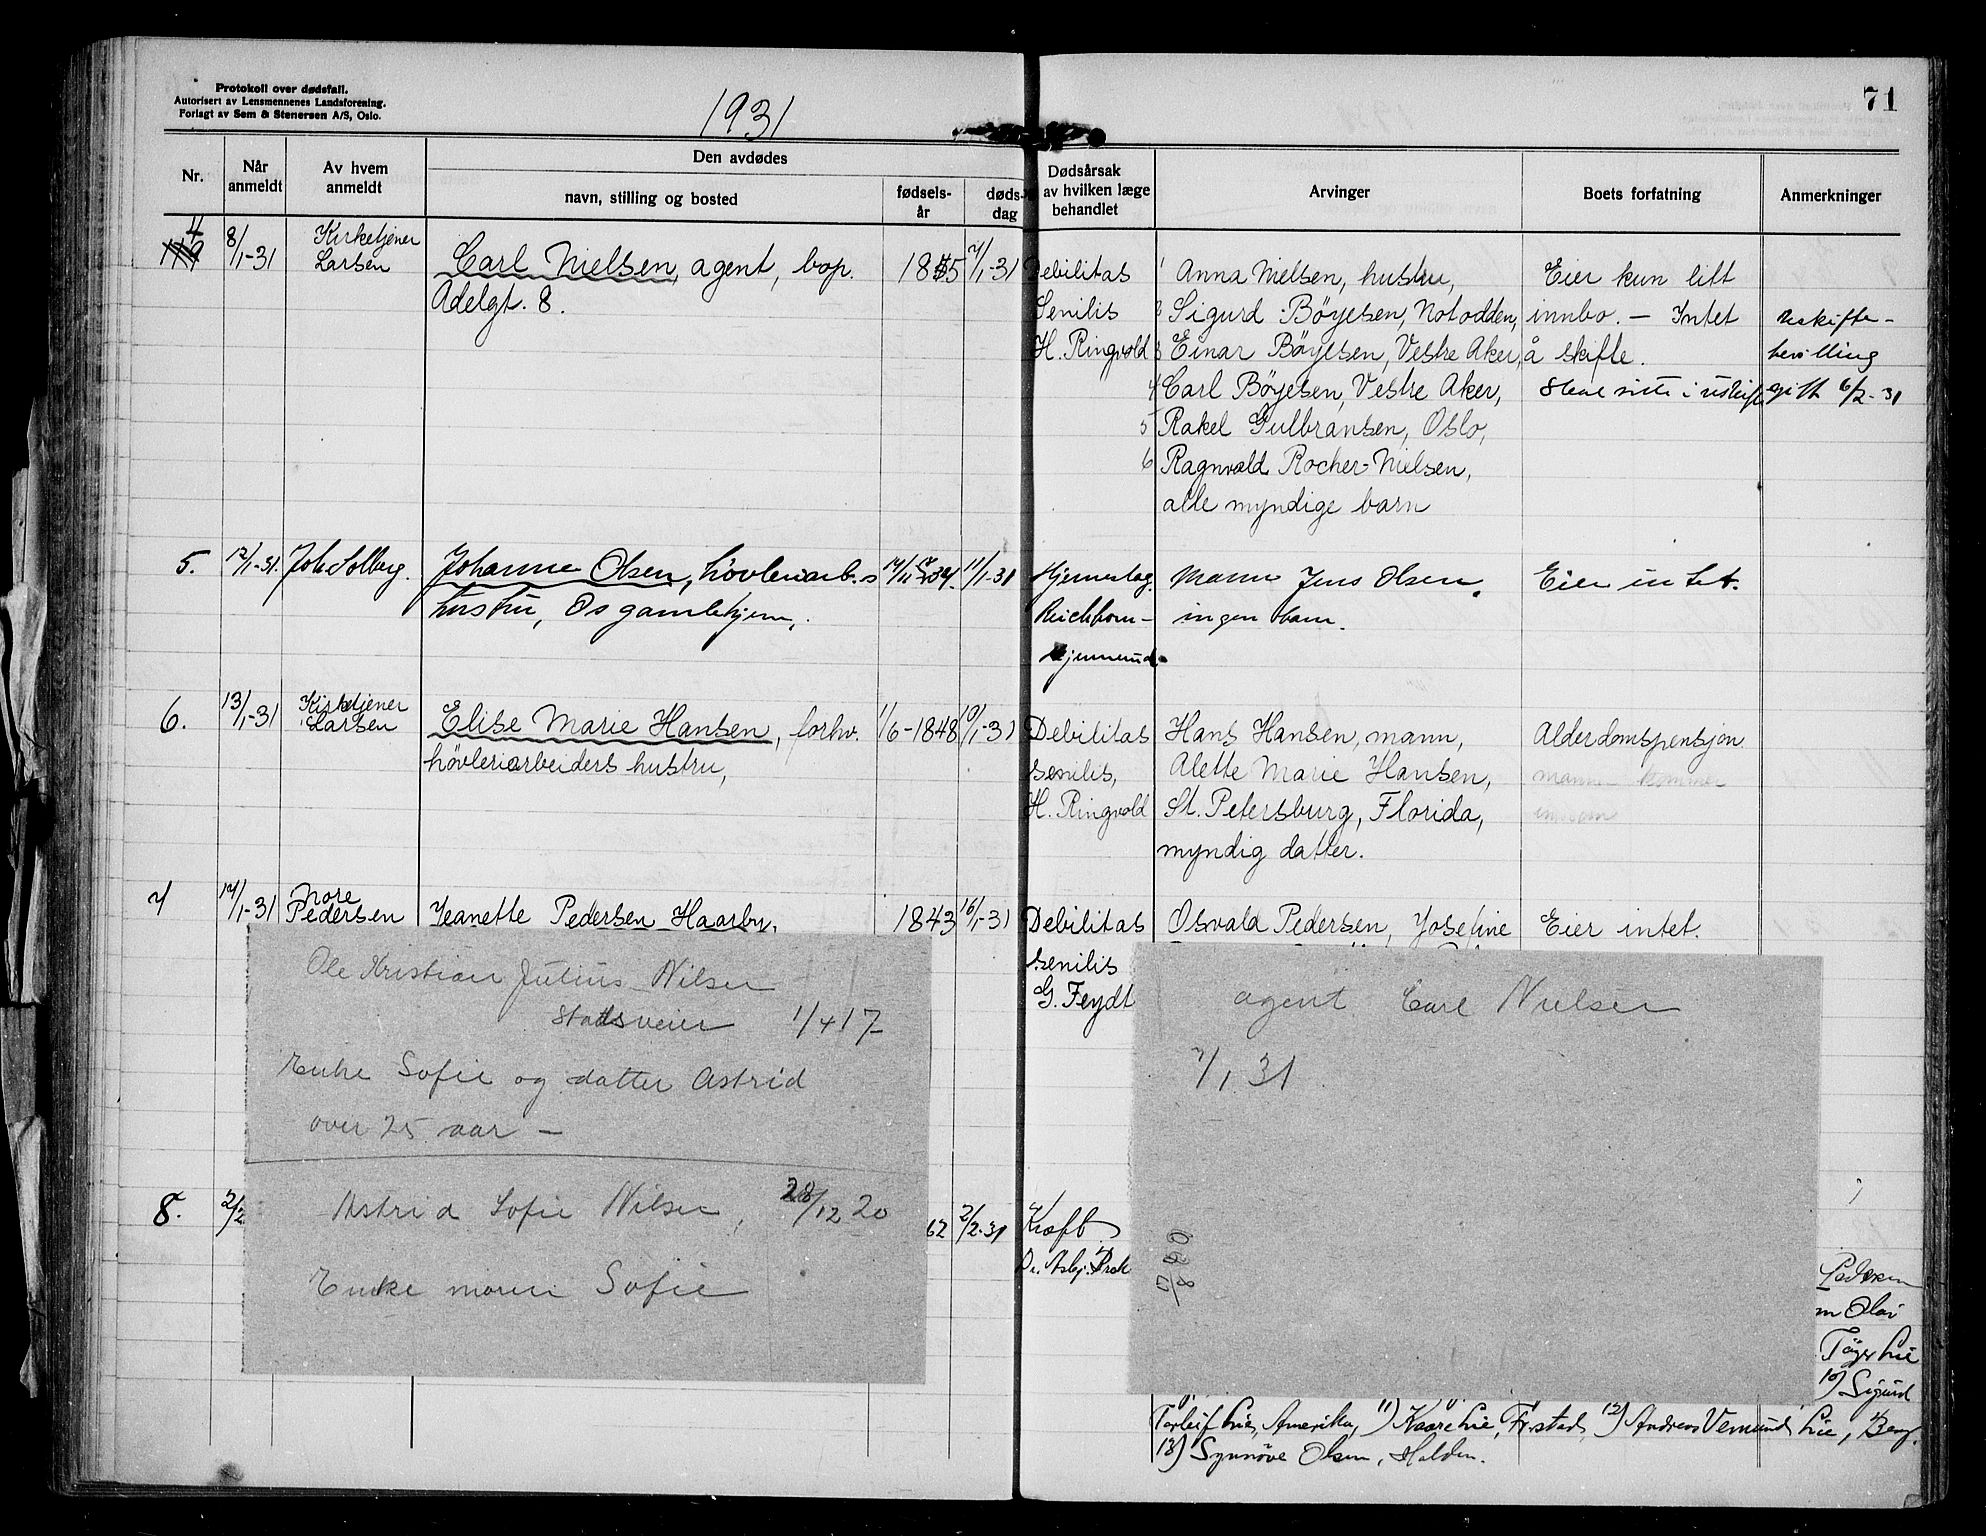 Protokoll over dødsfall.
Autorisert av Lensmennenes Landsforening.
Forlagt av Sem & Stenersen A/S, Oslo.
1931
71
Nr.
Når anmeldt
Av hvem anmeldt
Den avdødes
navn, stilling og bosted
fødsels-år
døds-dag
Dødsårsak
av hvilken læge
behandlet
Arvinger
Boets forfatning
Anmerkninger
4
8/1-31
Kirketjener
Larsen
Carl Nielsen, agent, bop.
Adelgt. 8.
1855
7/1-31
Debilitas
Senilis
H. Ringvold
1 Anna Nielsen, hustru,
2 Sigurd Bøyesen, Notodden,
3 Einar Bøyesen, Vestre Aker,
4 Carl Bøyesen, Vestre Aker,
5 Rakel Gulbransen, Oslo,
6 Ragnvald Rocher-Nielsen,
alle myndige barn
Eier kun litt
innbo. – Intet
å skifte.
Skal sitte i uskifte
Uskifte-
bevilling
gitt 6/2-31
5.
12/1-31.
Joh Solberg.
Johanne Olsen, høvleriarb.s
hustru, Os gamlehjem.
14/11
34.
11/1-31
Hjerneslag.
Reichborn-
Kjennerud.
Mann Jens Olsen.
ingen barn.
Eier intet.
6.
13/1-31
Kirketjener
Larsen
Elise Marie Hansen, forhv.
høvleriarbeiders hustru,
1/6-1848
10/1-31
Debilitas
senilis,
H. Ringvold
Hans Hansen, mann,
Alette Marie Hansen,
St. Petersburg, Florida,
myndig datter.
Alderdomspensjon
mann kommer
innom
7
17/1-31
Thore
Pedersen
Jeanette Pedersen Haarby.
1843
16/1-31
Debilitas
senilis
G. Feydt
Osvald Pedersen, Josefine
Eier intet.
Ole Kristian Julius Nilsen
Stadsveier 1/4 17-
Enke Sofie og datter Astrid
over 25 aar –
Astrid Sofie Nilsen, 28/12 20
Enke moren Sofie
agent Carl Nielsen
7/1 31
8.
2/2
62
2/2-31
Kræft
Dr. Asbj.
Pedersen
m Olav
Tøger Lie
10) Sigurd
Torleif Lie, Amerika, 11) Kaare Lie, Fr.stad, 12) Andreas Vemund Lie, Berg.
13) Synnöve Olsen, Halden.